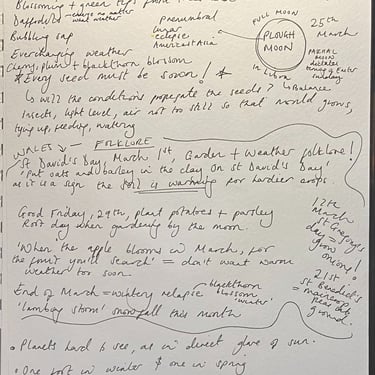 Blossoming + green tips
Daffodils - emerge no matter what weather
Bubbling sap
Everchanging weather
Cherry, plum + blackthorn blossom
penumbral
lunar
eclipse
Americas + Asia
FULL MOON
PLOUGH
MOON
in Libra
↳ balance
25th
March
PASCHAL
MOON
dictates
timing of Easter
Sunday
* Every seed must be sown! *
↳ will the conditions propagate the seeds?
Insects, light level, air not to still so that mould grows,
tying up, feeding, watering
WALES → FOLKLORE
St David's Day, March 1st, Garden + Weather folklore!
'Put oats and barley in the clay on St David's Day'
as it is a sign the soil is warming for hardier crops.
Good Friday, 29th, plant potatoes + parsley
Root day when gardening by the moon.
'When the apple blooms in March, for
the fruit you'll search' = don't want warm
weather too soon.
End of March = wintery relapse blackthorn blossom 'winter'
'lambing storm' snowfall this month
12th
March
St Gregory's
day =
grow
onions!
21st
St Benedict's =
maincrop
peas in
ground.
• Planets hard to see, as in direct glare of sun.
• One foot in winter & one in spring